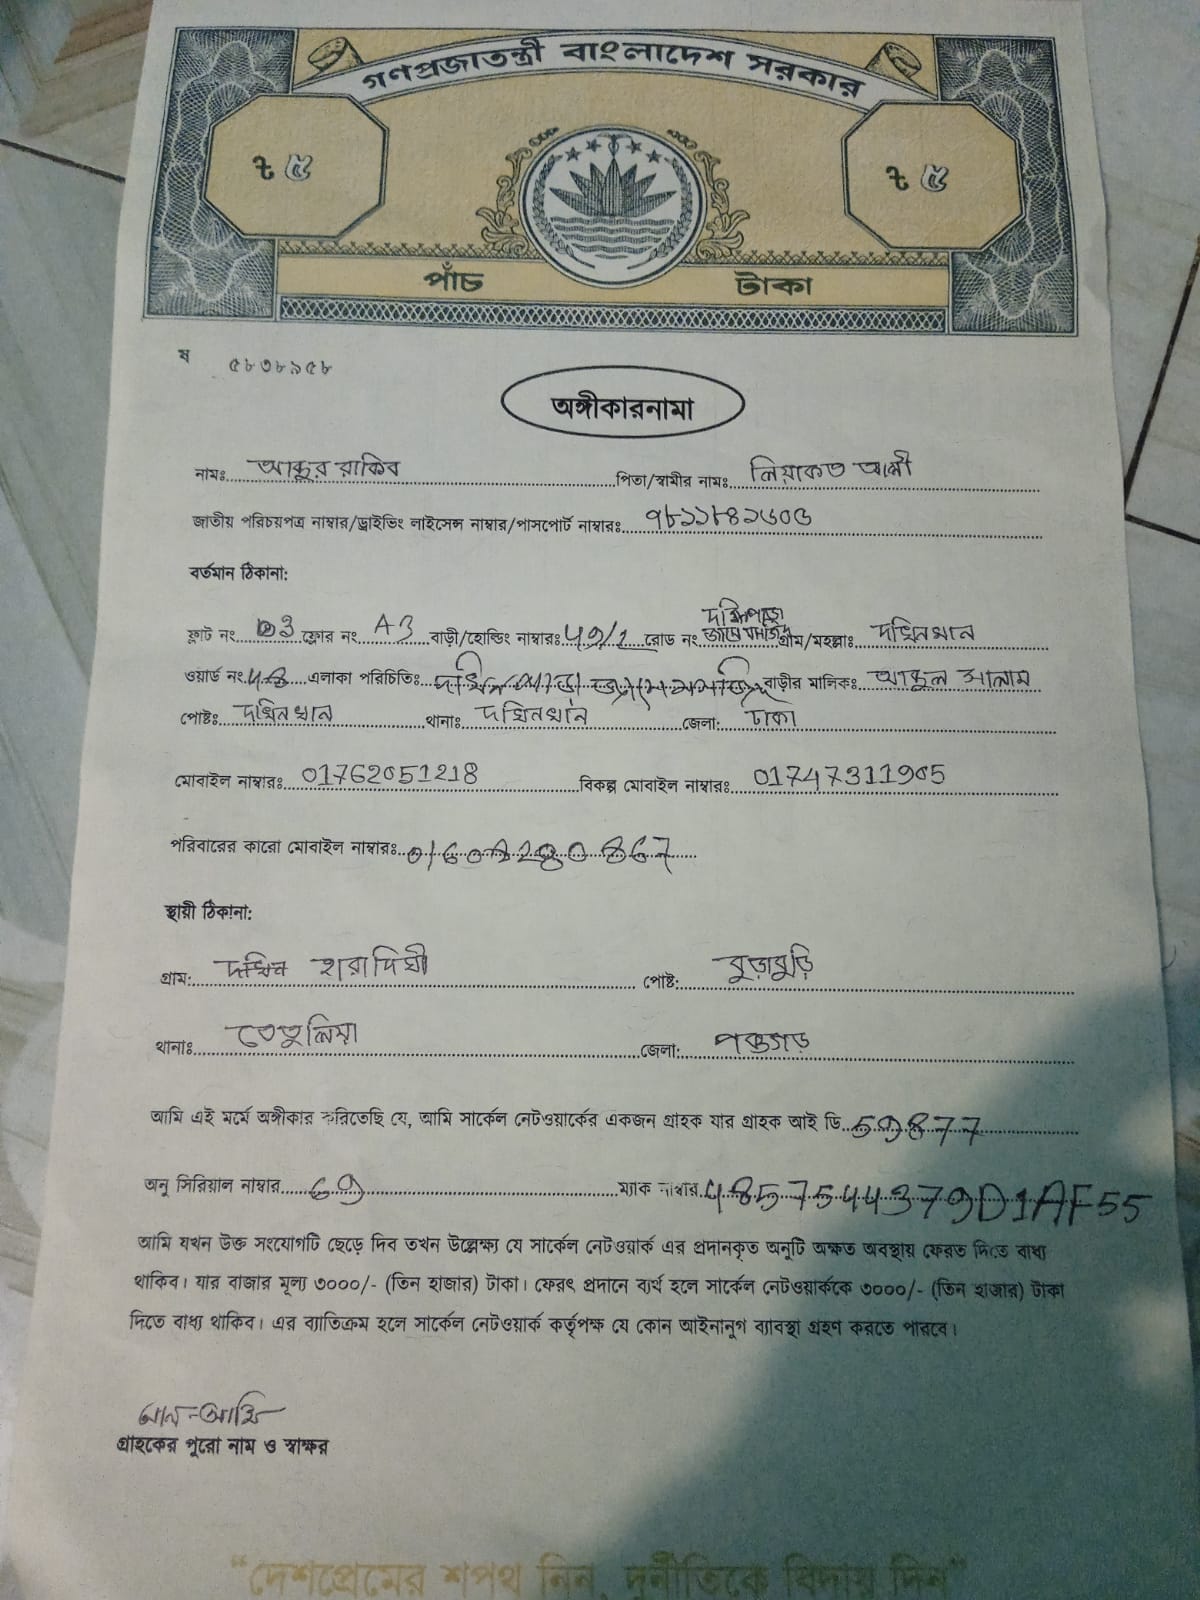 গণপ্রজাতন্ত্রী বাংলাদেশ সরকার
৳ ৫ ৳ ৫
পাঁচ টাকা
ষ ৫৮৩৮৯৫৮
অঙ্গীকারনামা
নামঃ আব্দুর রাকিব পিতা/স্বামীর নামঃ লিয়াকত আলী
জাতীয় পরিচয়পত্র নাম্বার/ড্রাইভিং লাইসেন্স নাম্বার/পাসপোর্ট নাম্বারঃ
বর্তমান ঠিকানা:
ফ্লাট নং D3 ফ্লোর নং A3 বাড়ী/হোল্ডিং নাম্বারঃ 49/1 রোড নং গ্রাম/মহল্লাঃ দক্ষিনখান
ওয়ার্ড নং 48 এলাকা পরিচিতিঃ বাড়ীর মালিকঃ আব্দুল আলাম
পোষ্টঃ দক্ষিনখান থানাঃ দক্ষিনখান জেলা: ঢাকা
মোবাইল নাম্বারঃ 01762051218 বিকল্প মোবাইল নাম্বারঃ 01747311905
পরিবারের কারো মোবাইল নাম্বারঃ
স্থায়ী ঠিকানা:
গ্রাম: দক্ষিন হারাদিঘী পোষ্ট: বুড়াবুড়ি
থানাঃ তেতুলিয়া জেলা: পঞ্চগড়
আমি এই মর্মে অঙ্গীকার করিতেছি যে, আমি সার্কেল নেটওয়ার্কের একজন গ্রাহক যার গ্রাহক আই ডি 59877
অনু সিরিয়াল নাম্বার 69 ম্যাক নাম্বার 4857544379D1AF55
আমি যখন উক্ত সংযোগটি ছেড়ে দিব তখন উল্লেক্ষ্য যে সার্কেল নেটওয়ার্ক এর প্রদানকৃত অনুটি অক্ষত অবস্থায় ফেরত দিতে বাধ্য
থাকিব। যার বাজার মূল্য ৩০০০/- (তিন হাজার) টাকা। ফেরৎ প্রদানে ব্যর্থ হলে সার্কেল নেটওয়ার্ককে ৩০০০/- (তিন হাজার) টাকা
দিতে বাধ্য থাকিব। এর ব্যাতিক্রম হলে সার্কেল নেটওয়ার্ক কর্তৃপক্ষ যে কোন আইনানুগ ব্যাবস্থা গ্রহণ করতে পারবে।
গ্রাহকের পুরো নাম ও স্বাক্ষর
“দেশপ্রেমের শপথ নিন, দুর্নীতিকে বিদায় দিন”